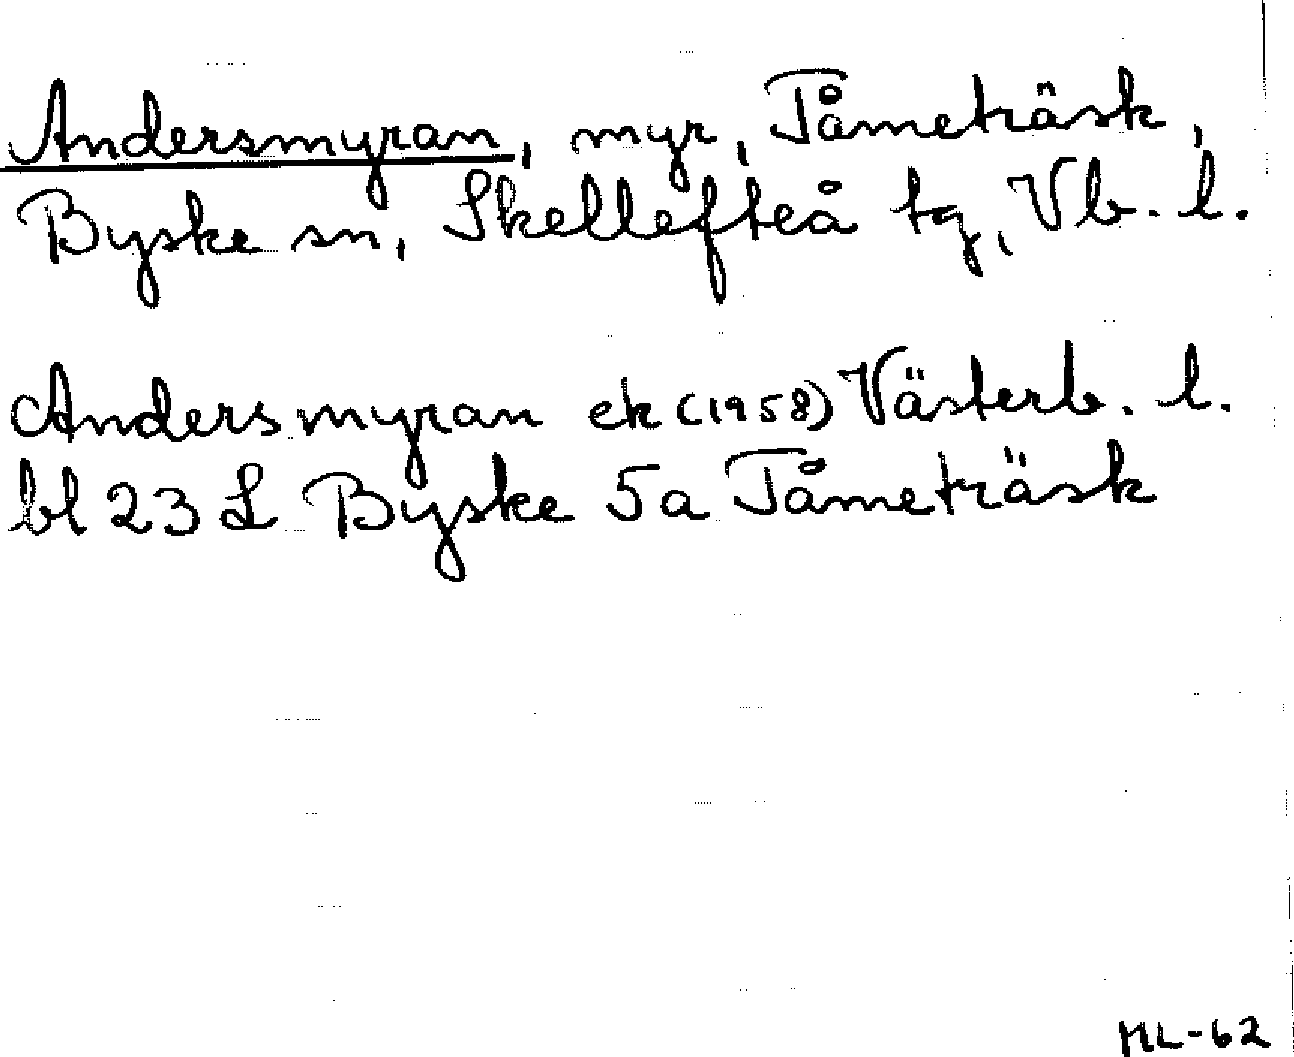 Andersmyran, myr, Tåmeträsk,
Byske sn, Skellefteå tg, Vb. l.
Andersmyran ek (1958) Västerb. l.
bl 23 L Byske 5a Tåmeträsk
ML-62